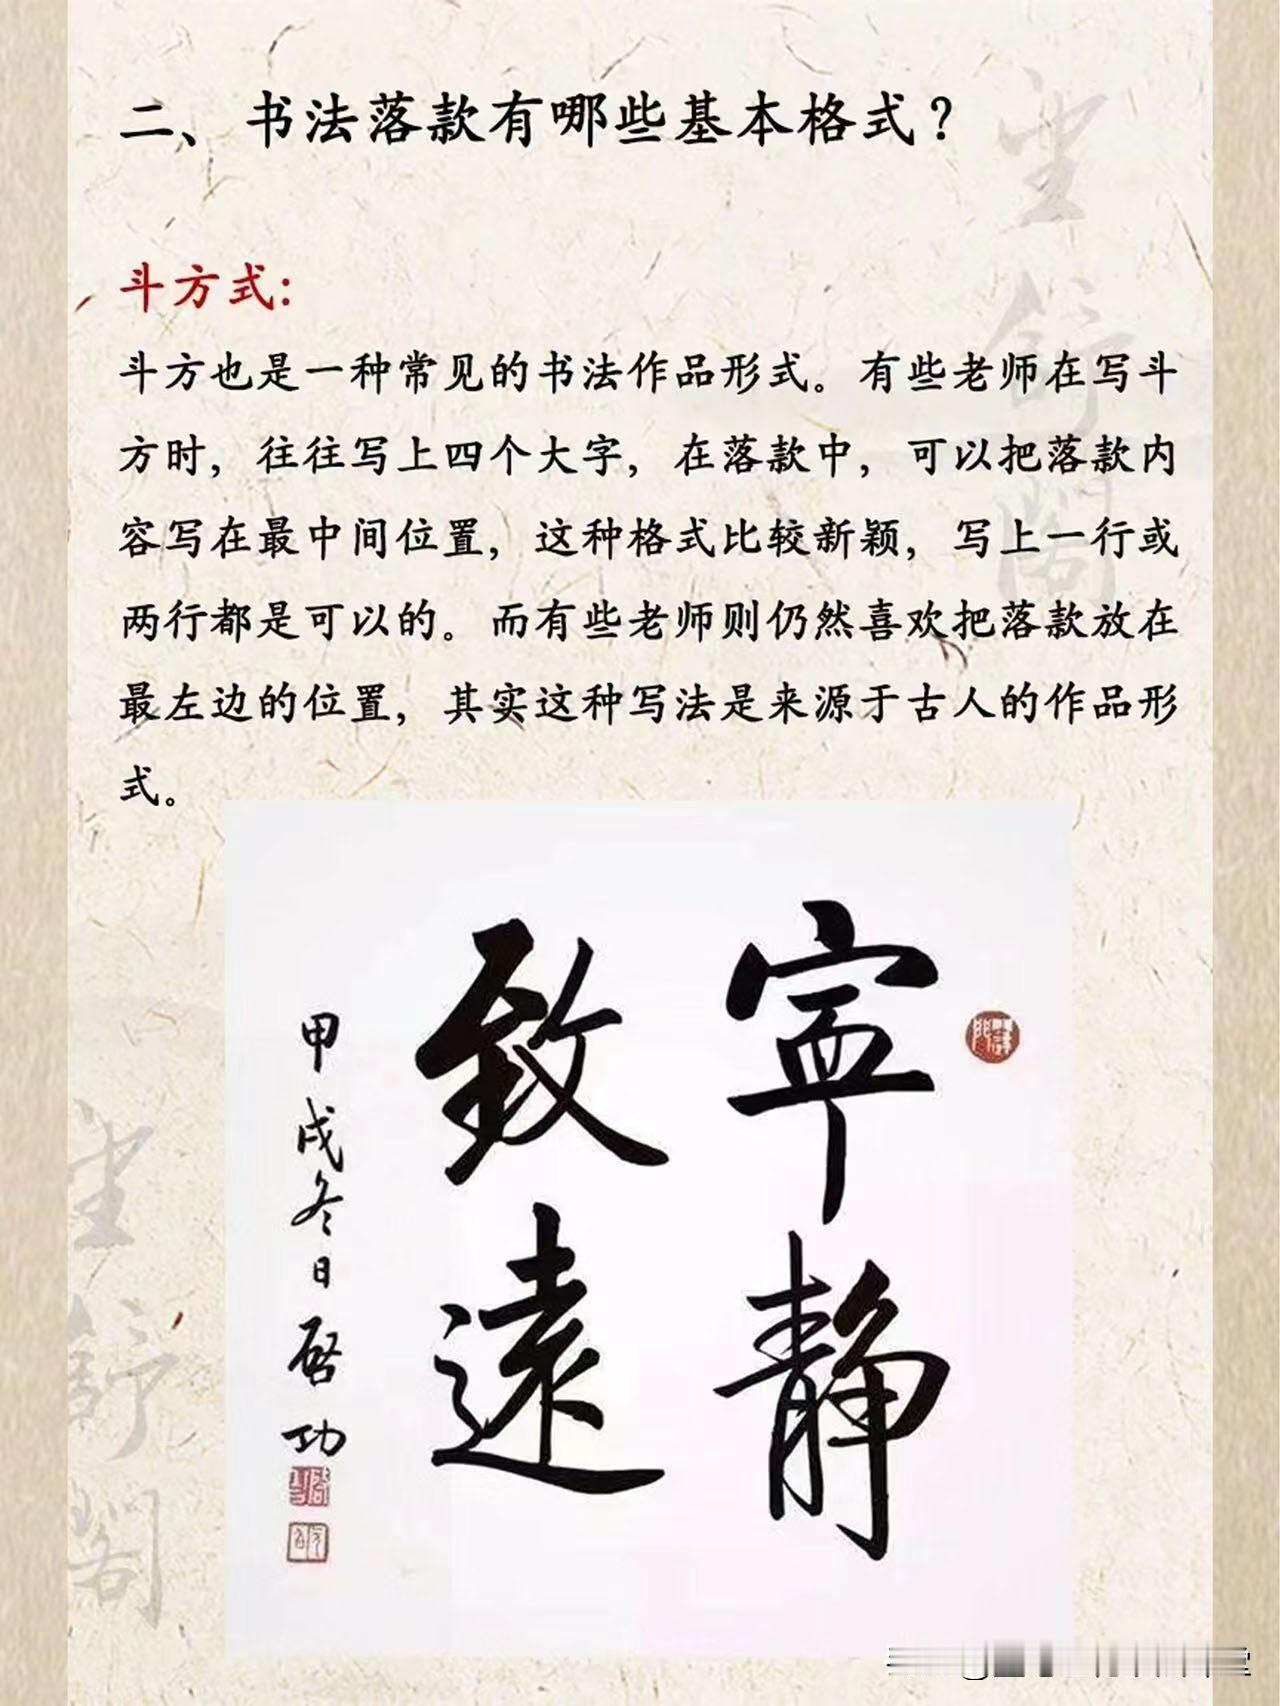 二、书法落款有哪些基本格式？
斗方式:
斗方也是一种常见的书法作品形式。有些老师在写斗
方时，往往写上四个大字，在落款中，可以把落款内
容写在最中间位置，这种格式比较新颖，写上一行或
两行都是可以的。而有些老师则仍然喜欢把落款放在
最左边的位置，其实这种写法是来源于古人的作品形
式。
寧静
致遠
甲戌冬日启功